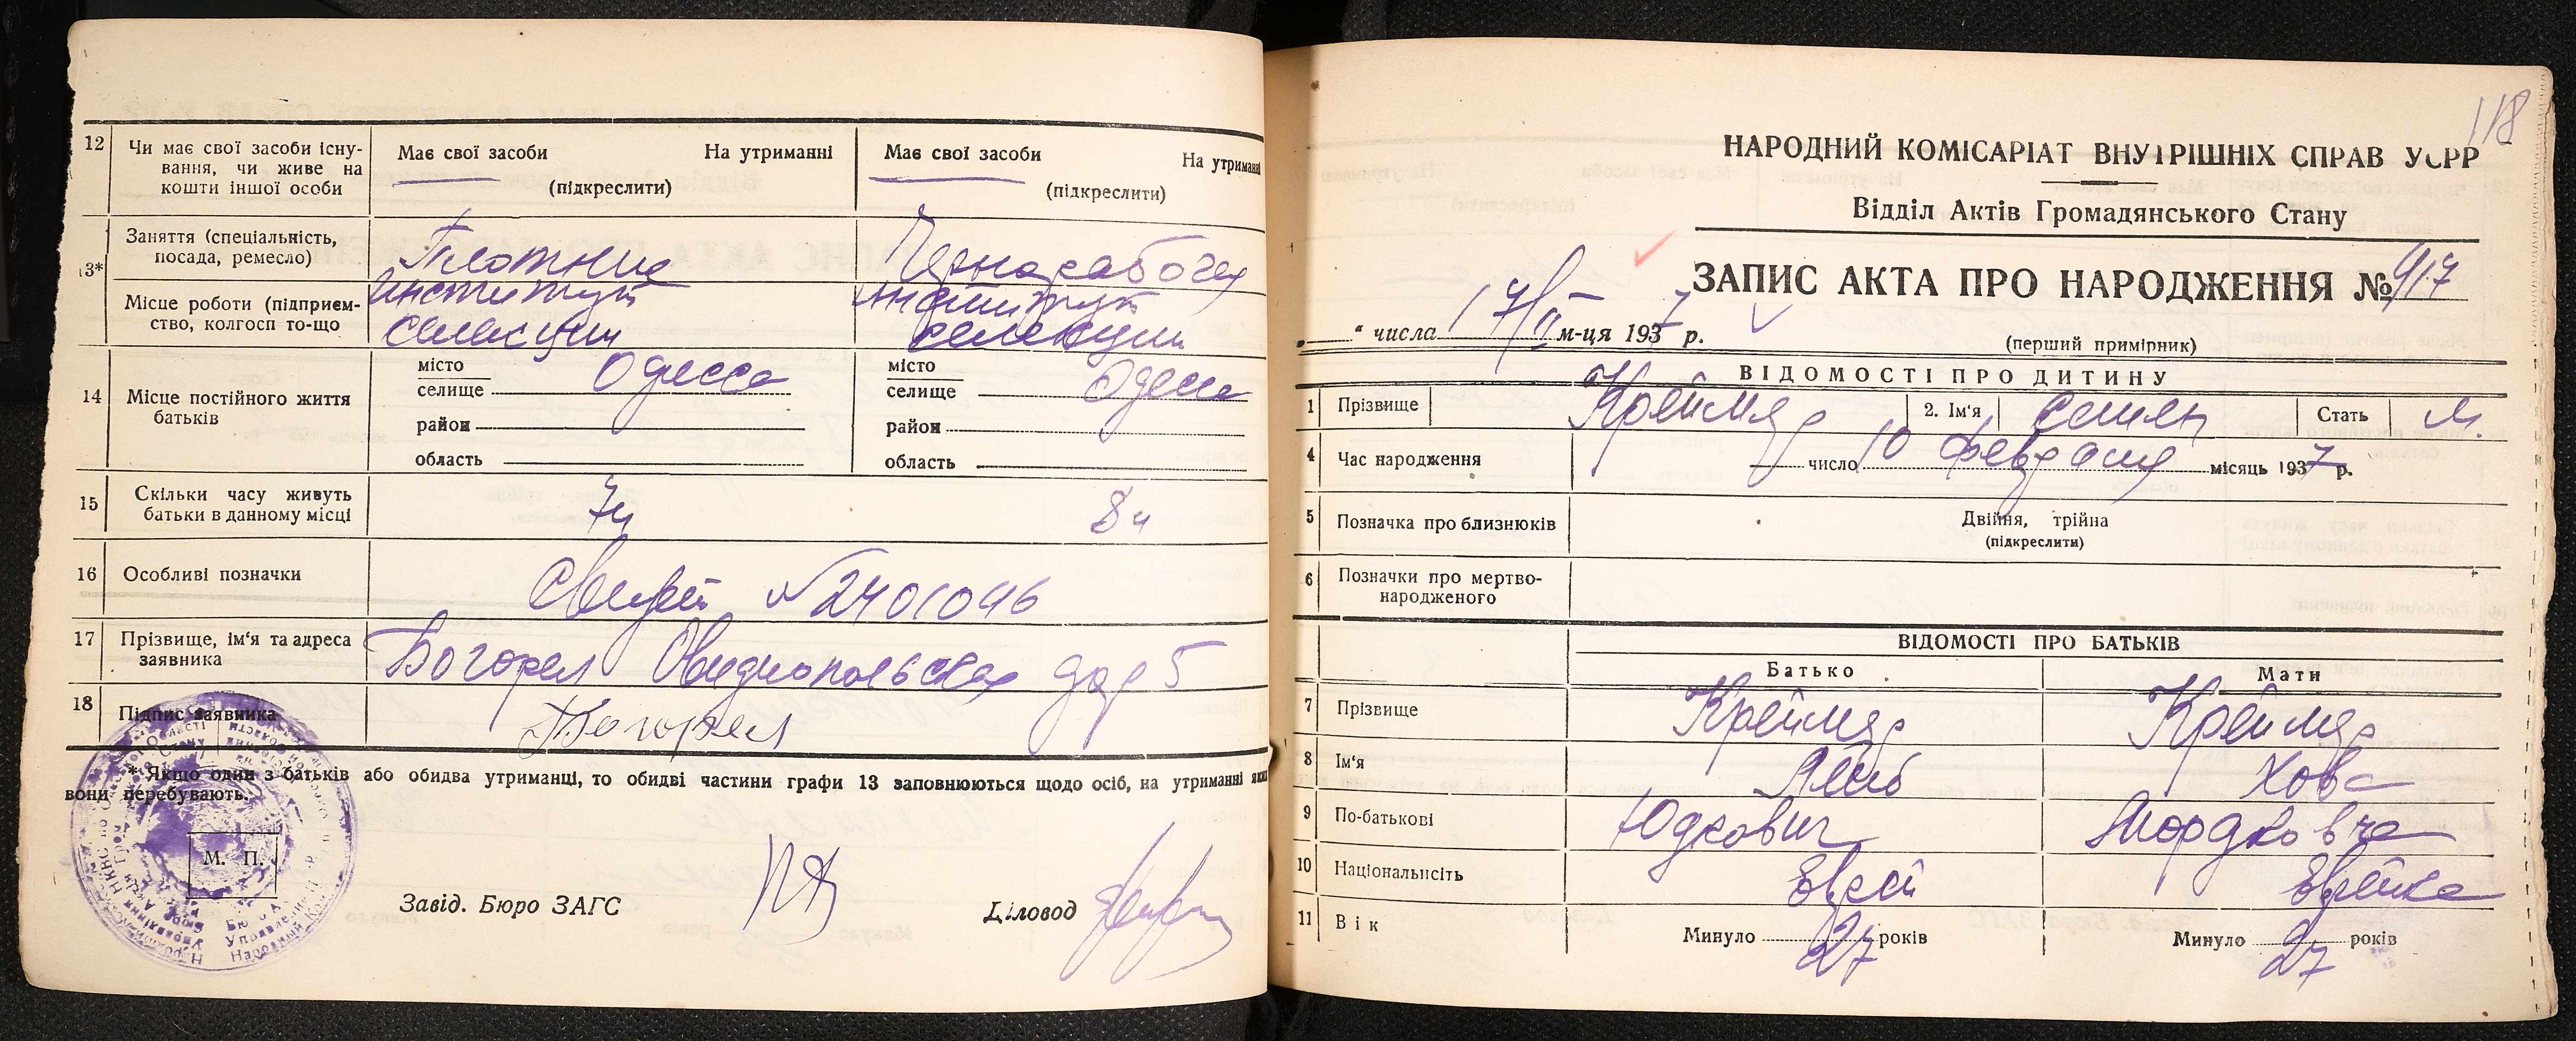 12 Чи має свої засоби існу-
вання, чи живе на
кошти іншої особи
Має свої засоби На утриманні
(підкреслити)
Має свої засоби На утриманні
(підкреслити)
13* Заняття (спеціальність,
посада, ремесло)
Плотник
Чернорабочая
Місце роботи (підприєм-
ство, колгосп то-що
институт
селекции
институт
селекции
14 Місце постійного життя
батьків
місто
селище Одесса
район
область
місто
селище Одесса
район
область
15 Скільки часу живуть
батьки в данному місці
7л
8л
16 Особливі позначки
№ 2401046
17 Прізвище, ім'я та адреса
заявника
Овидиопольская дор 5
18 Підпис заявника
* Якщо один з батьків або обидва утриманці, то обидві частини графи 13 заповнюються щодо осіб, на утриманні яких
вони перебувають.
М. П.
Завід. Бюро ЗАГС
Діловод
118
НАРОДНИЙ КОМІСАРІАТ ВНУТРІШНІХ СПРАВ УСРР
Відділ Актів Громадянського Стану
ЗАПИС АКТА ПРО НАРОДЖЕННЯ № 917
" числа 17/II м-ця 1937 р.
(перший примірник)
ВІДОМОСТІ ПРО ДИТИНУ
1 Прізвище Креймер 2. Ім'я Семен Стать М.
4 Час народження число 10 февраля місяць 1937 р.
5 Позначка про близнюків Двійня, трійна
(підкреслити)
6 Позначки про мертво-
народженого
ВІДОМОСТІ ПРО БАТЬКІВ
Батько Мати
7 Прізвище Креймер Креймер
8 Ім'я Хова
9 По-батькові Юдкович Мордковна
10 Національність Еврей Еврейка
11 Вік Минуло 27 років Минуло 27 років